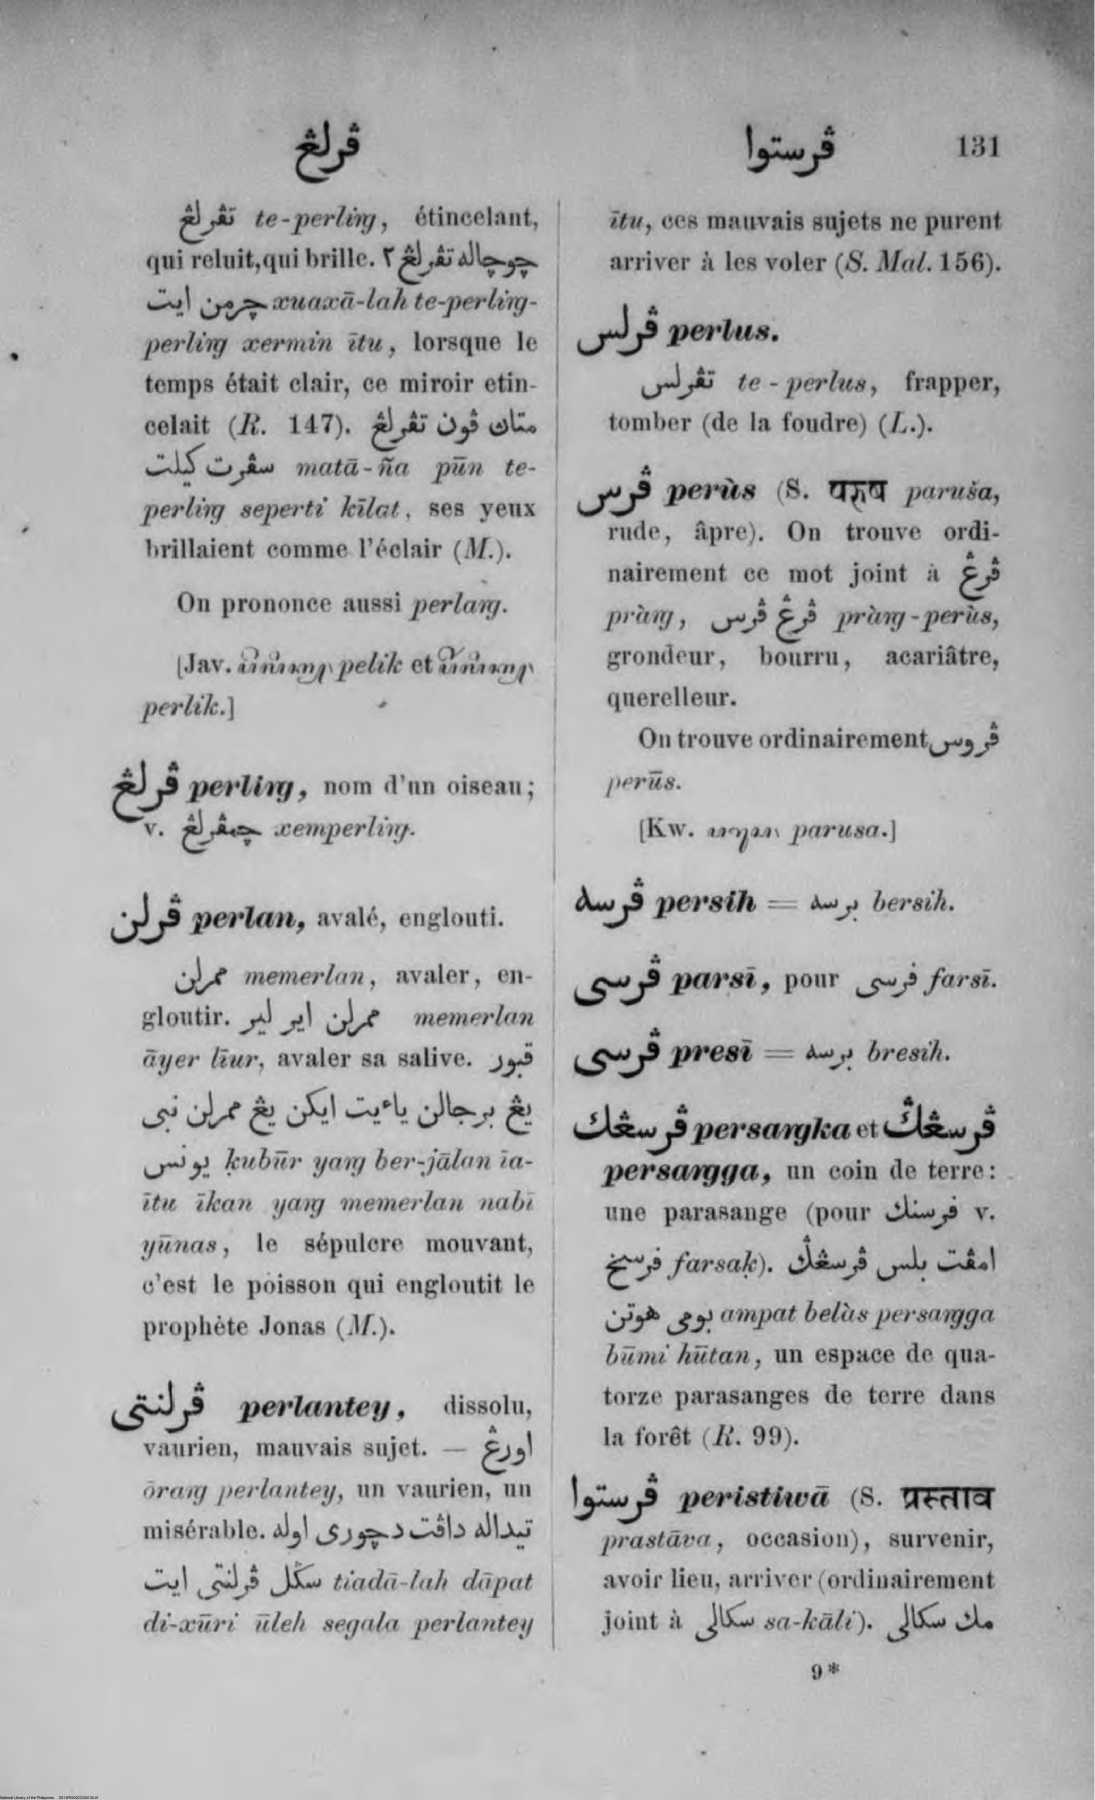 ڤرلڠ
ڤرستوا 131
تڤرلڠ te-perling, étincelant,
qui reluit, qui brille. چوچاله تڤرلڠ٢
چرمن ايت xuaxā-lah te-perling-
perling xermin ītu, lorsque le
temps était clair, ce miroir etin-
celait (R. 147). متاڽ ڤون تڤرلڠ
سڤرت كيلت matā-ña pūn te-
perling seperti kīlat, ses yeux
brillaient comme l'éclair (M.).
On prononce aussi perlang.
[Jav. pelik et
perlik.]
ڤرلڠ perling, nom d'un oiseau;
v. چمڤرلڠ xemperling.
ڤرلن perlan, avalé, englouti.
ممرلن memerlan, avaler, en-
gloutir. ممرلن اير لير memerlan
āyer līur, avaler sa salive. قبور
يڠ برجالن ياءيت ايكن يڠ ممرلن نبى
يونس ḳubūr yang ber-jālan īa-
ītu īkan yang memerlan nabī
yūnas, le sépulcre mouvant,
c'est le poisson qui engloutit le
prophète Jonas (M.).
ڤرلنتى perlantey, dissolu,
vaurien, mauvais sujet. — اورڠ
ōrang perlantey, un vaurien, un
misérable. تيداله داڤت دچورى اوله
سڬل ڤرلنتى ايت tiadā-lah dāpat
di-xūri ūleh segala perlantey
ītu, ces mauvais sujets ne purent
arriver à les voler (S. Mal. 156).
ڤرلس perlus.
تڤرلس te-perlus, frapper,
tomber (de la foudre) (L.).
ڤرس perùs (S. परुष paruša,
rude, âpre). On trouve ordi-
nairement ce mot joint à ڤرڠ
pràng, ڤرڠ ڤرس pràng-perùs,
grondeur, bourru, acariâtre,
querelleur.
On trouve ordinairement ڤروس
perūs.
[Kw. parusa.]
ڤرسه persih = برسه bersih.
ڤرسى parsī, pour فرسى farsī.
ڤرسى presī = برسه bresih.
ڤرسڠك persangka et ڤرسڠݢ
persangga, un coin de terre:
une parasange (pour فرسنك v.
فرسخ farsaḳ). امڤت بلس ڤرسڠݢ
بومى هوتن ampat belàs persangga
būmi hūtan, un espace de qua-
torze parasanges de terre dans
la forêt (R. 99).
ڤرستوا peristiwā (S. प्रस्ताव
prastāva, occasion), survenir,
avoir lieu, arriver (ordinairement
joint à سكالى sa-kāli). مك سكالى
9*